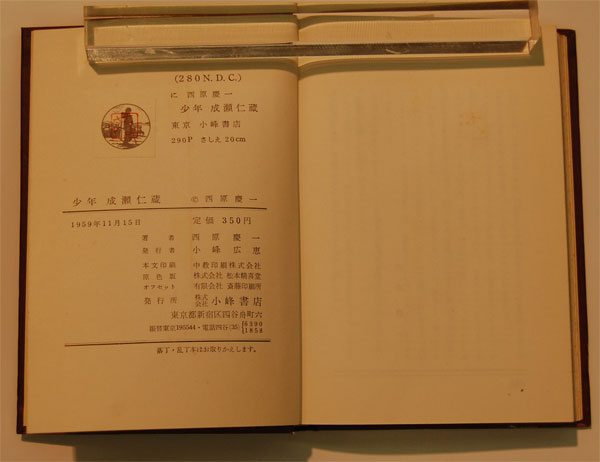 (280N.D.C.)
に 西原慶一
少年 成瀬仁蔵
東京 小峰書店
290P さしえ 20cm
少年 成瀬仁蔵 © 西原慶一
1959年11月15日 定価 350円
著者 西原慶一
発行者 小峰広恵
本文印刷 中教印刷株式会社
原色版 株式会社 松本精喜堂
オフセット 有限会社 斎藤印刷所
発行所 株式会社 小峰書店
東京都新宿区四谷舟町六
振替東京195544・電話四谷(35) 6390 1858
落丁・乱丁本はお取りかえします。